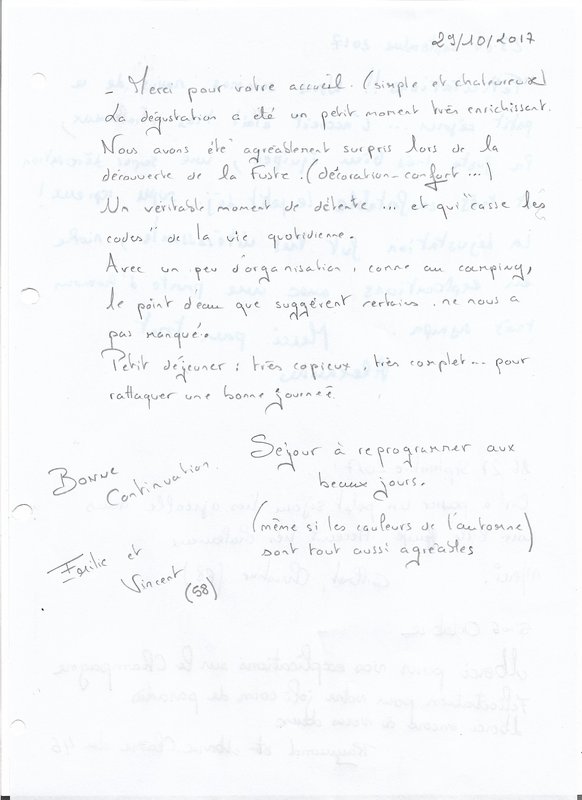 29/10/2017
- Merci pour votre accueil. (simple et chaleureux)
La dégustation a été un petit moment très enrichissant.
Nous avons été agréablement surpris lors de la
découverte de la Fustre. (décoration - confort ...)
Un véritable moment de détente ... et qui "casse les
codes" de la vie quotidienne.
Avec un peu d'organisation, comme au camping,
le point d'eau que suggèrent certains, ne nous a
pas manqué.
Petit déjeuner : très copieux, très complet ... pour
rattaquer une bonne journée.
Séjour à reprogrammer aux
beaux jours.
(même si les couleurs de l'automne)
sont tout aussi agréables
Bonne
Continuation.
et
Vincent
(58)